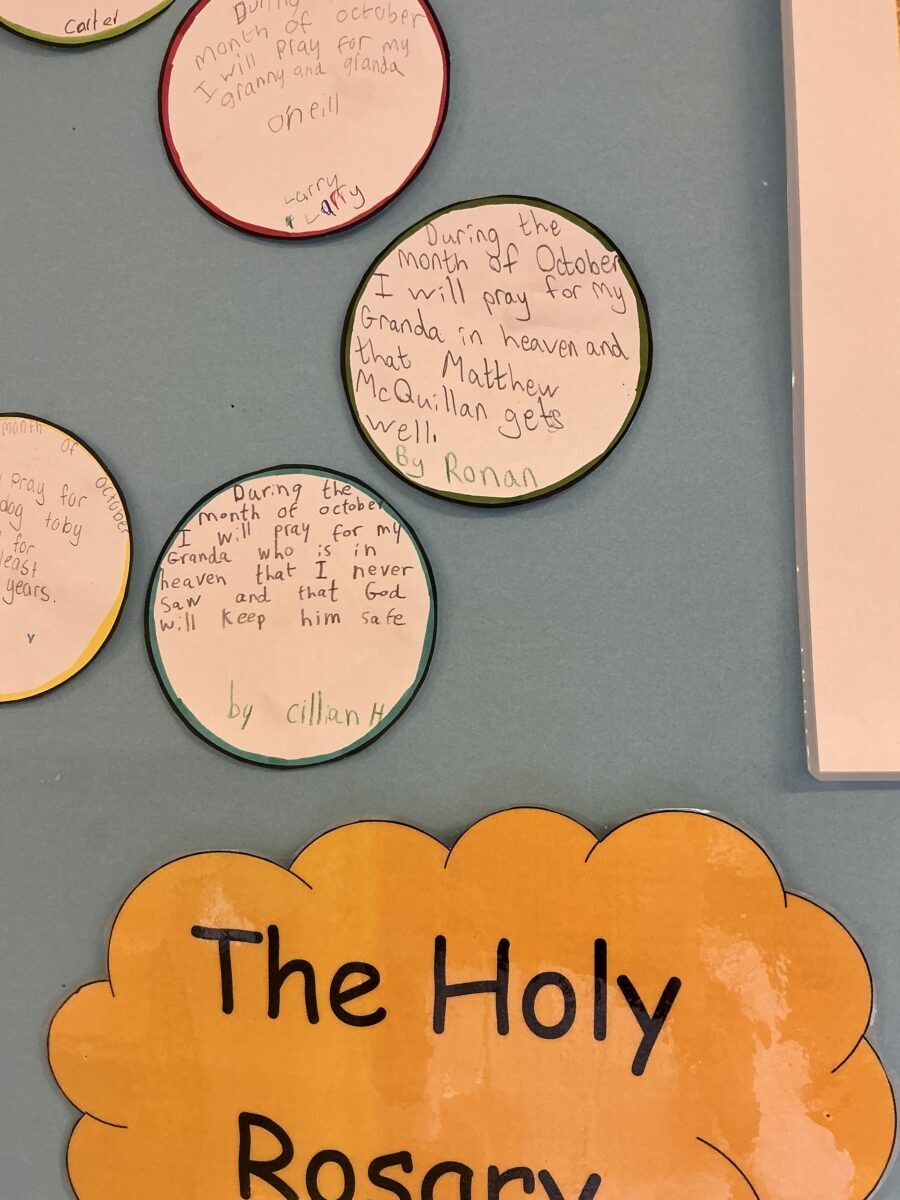 carter
During
month of october
I will pray for my
granny and granda
o'neill
Larry
Larry
During the
month of October
I will pray for my
Granda in heaven and
that Matthew
McQuillan gets
well.
By Ronan
month of october
pray for
dog toby
for
least
years.
During the
month of october
I will pray for my
Granda who is in
heaven that I never
saw and that God
will keep him safe
by cillian H
The Holy
Rosary